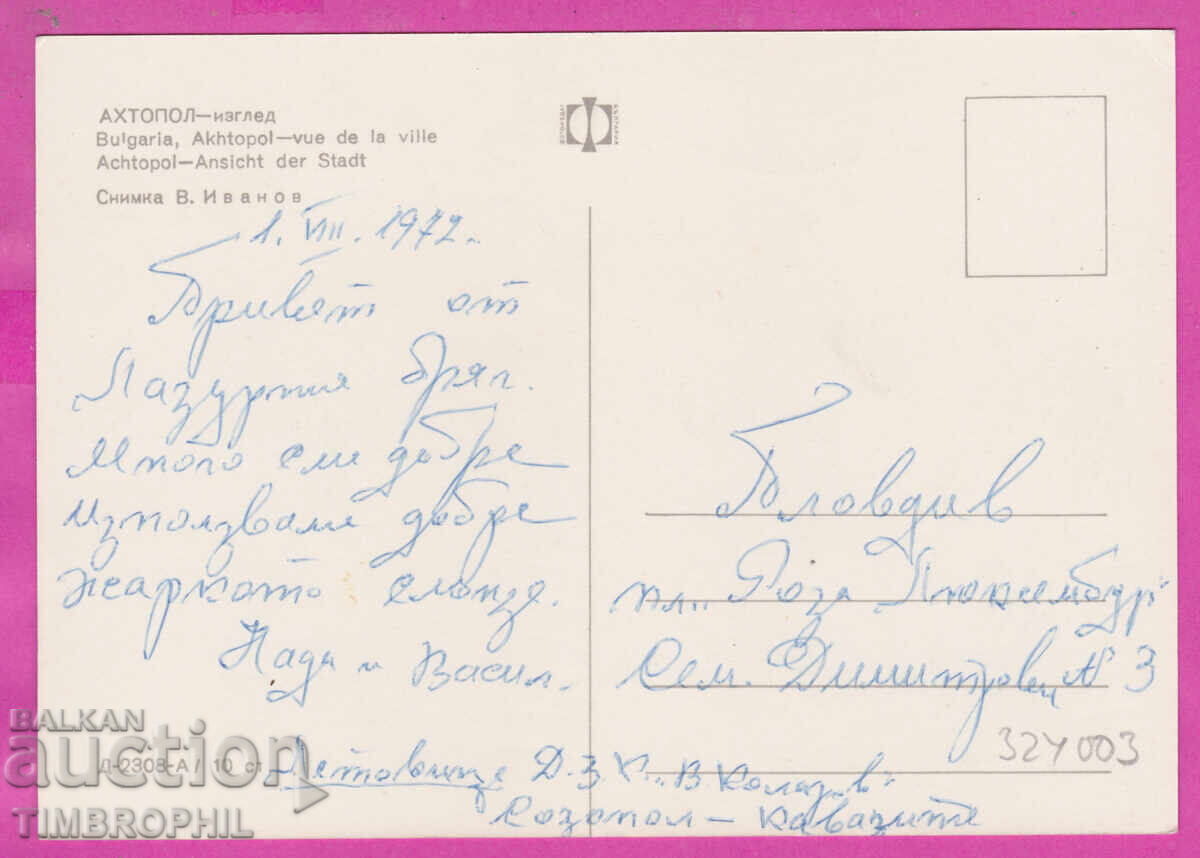 АХТОПОЛ—изглед
Bulgaria, Akhtopol—vue de la ville
Achtopol—Ansicht der Stadt
Снимка В. Иванов
1. VIII. 1972.
Привет от
Лазурния бряг.
Много сме добре
Използваме добре
жаркото слънце.
Надя и Васил.
Пловдив
пл. „Роза Люксембург"
Сем. Димитрови N 3
324003
Д-2308-А / 10 ст
Летовище Д.З.К. „В. Коларов"
Созопол – Каваците
BALKAN
auction
TIMBROPHIL